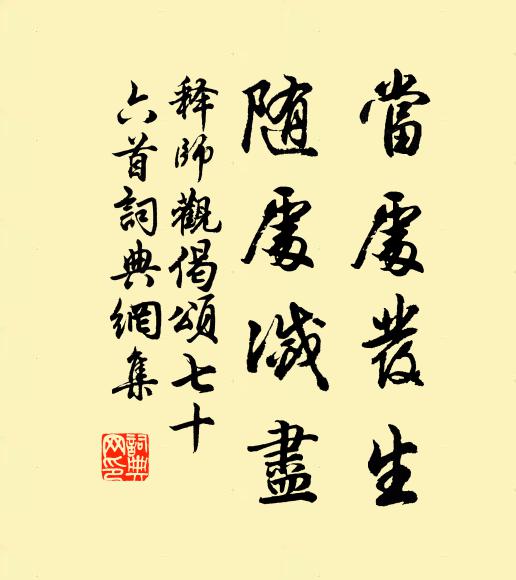 當處發生
随處滅盡
释師觀偈頌七十
六首詞典網集
詞典
网印